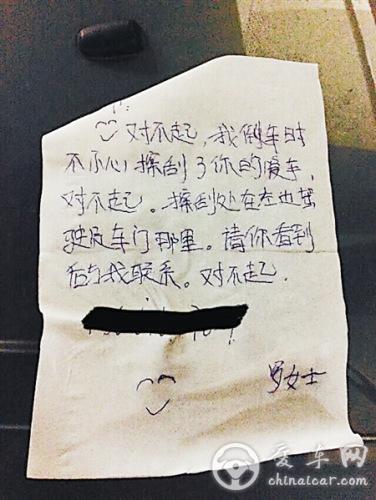 对不起,我倒车时
不小心擦刮了你的爱车,
对不起。擦刮处在左边驾
驶及车门那里。请你看到
后与我联系。对不起.
罗女士
爱车网
chinaicar.com